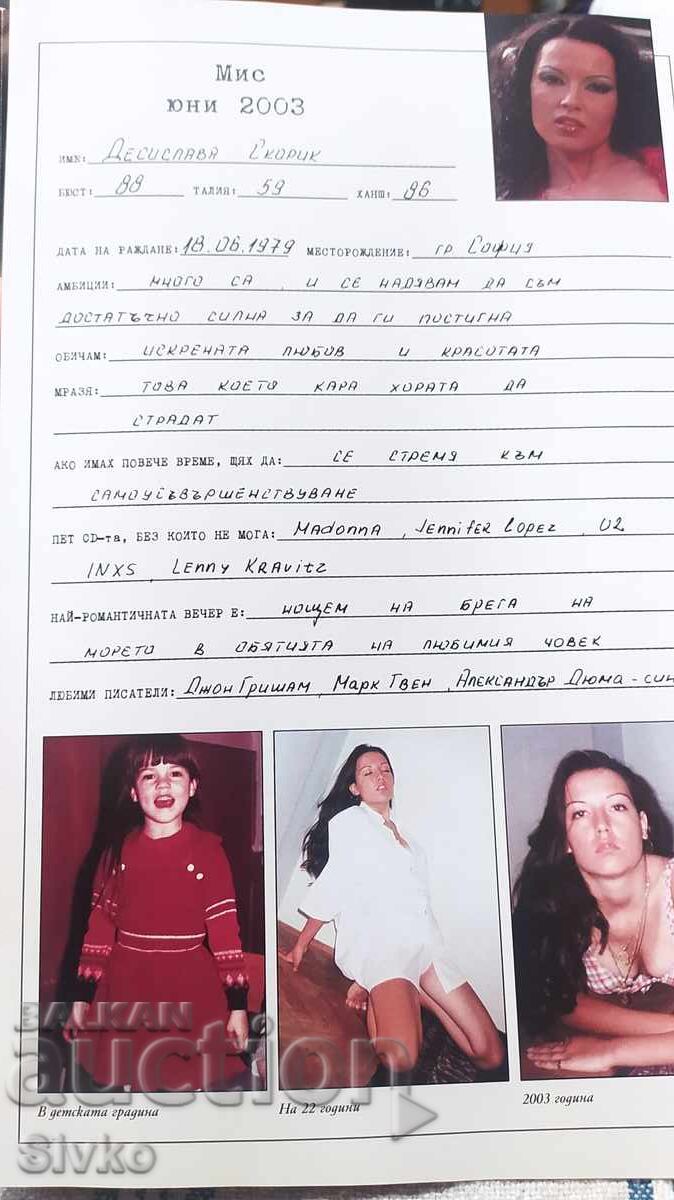 Мис
юни 2003
ИМЕ: ДЕСИСЛАВА СКОРИК
БЮСТ: 88 ТАЛИЯ: 59 ХАНШ: 86
ДАТА НА РАЖДАНЕ: 18.06.1979 МЕСТОРОЖДЕНИЕ: ГР. СОФИЯ
АМБИЦИИ: МНОГО СА, И СЕ НАДЯВАМ ДА СЪМ
ДОСТАТЪЧНО СИЛНА ЗА ДА ГИ ПОСТИГНА
ОБИЧАМ: ИСКРЕНАТА ЛЮБОВ И КРАСОТАТА
МРАЗЯ: ТОВА КОЕТО КАРА ХОРАТА ДА
СТРАДАТ
АКО ИМАХ ПОВЕЧЕ ВРЕМЕ, ЩЯХ ДА: СЕ СТРЕМЯ КЪМ
САМОУСЪВЪРШЕНСТВУВАНЕ
ПЕТ CD-та, БЕЗ КОИТО НЕ МОГА: MADONNA, JENNIFER LOPEZ, U2
INXS, LENNY KRAVITZ
НАЙ-РОМАНТИЧНАТА ВЕЧЕР Е: НОЩЕМ НА БРЕГА НА
МОРЕТО В ОБЯТИЯТА НА ЛЮБИМИЯ ЧОВЕК
ЛЮБИМИ ПИСАТЕЛИ: ДЖОН ГРИШАМ, МАРК ТВЕН, АЛЕКСАНДЪР ДЮМА - СИН
В детската градина
На 22 години
2003 година
BALKAN
auction
Sivko